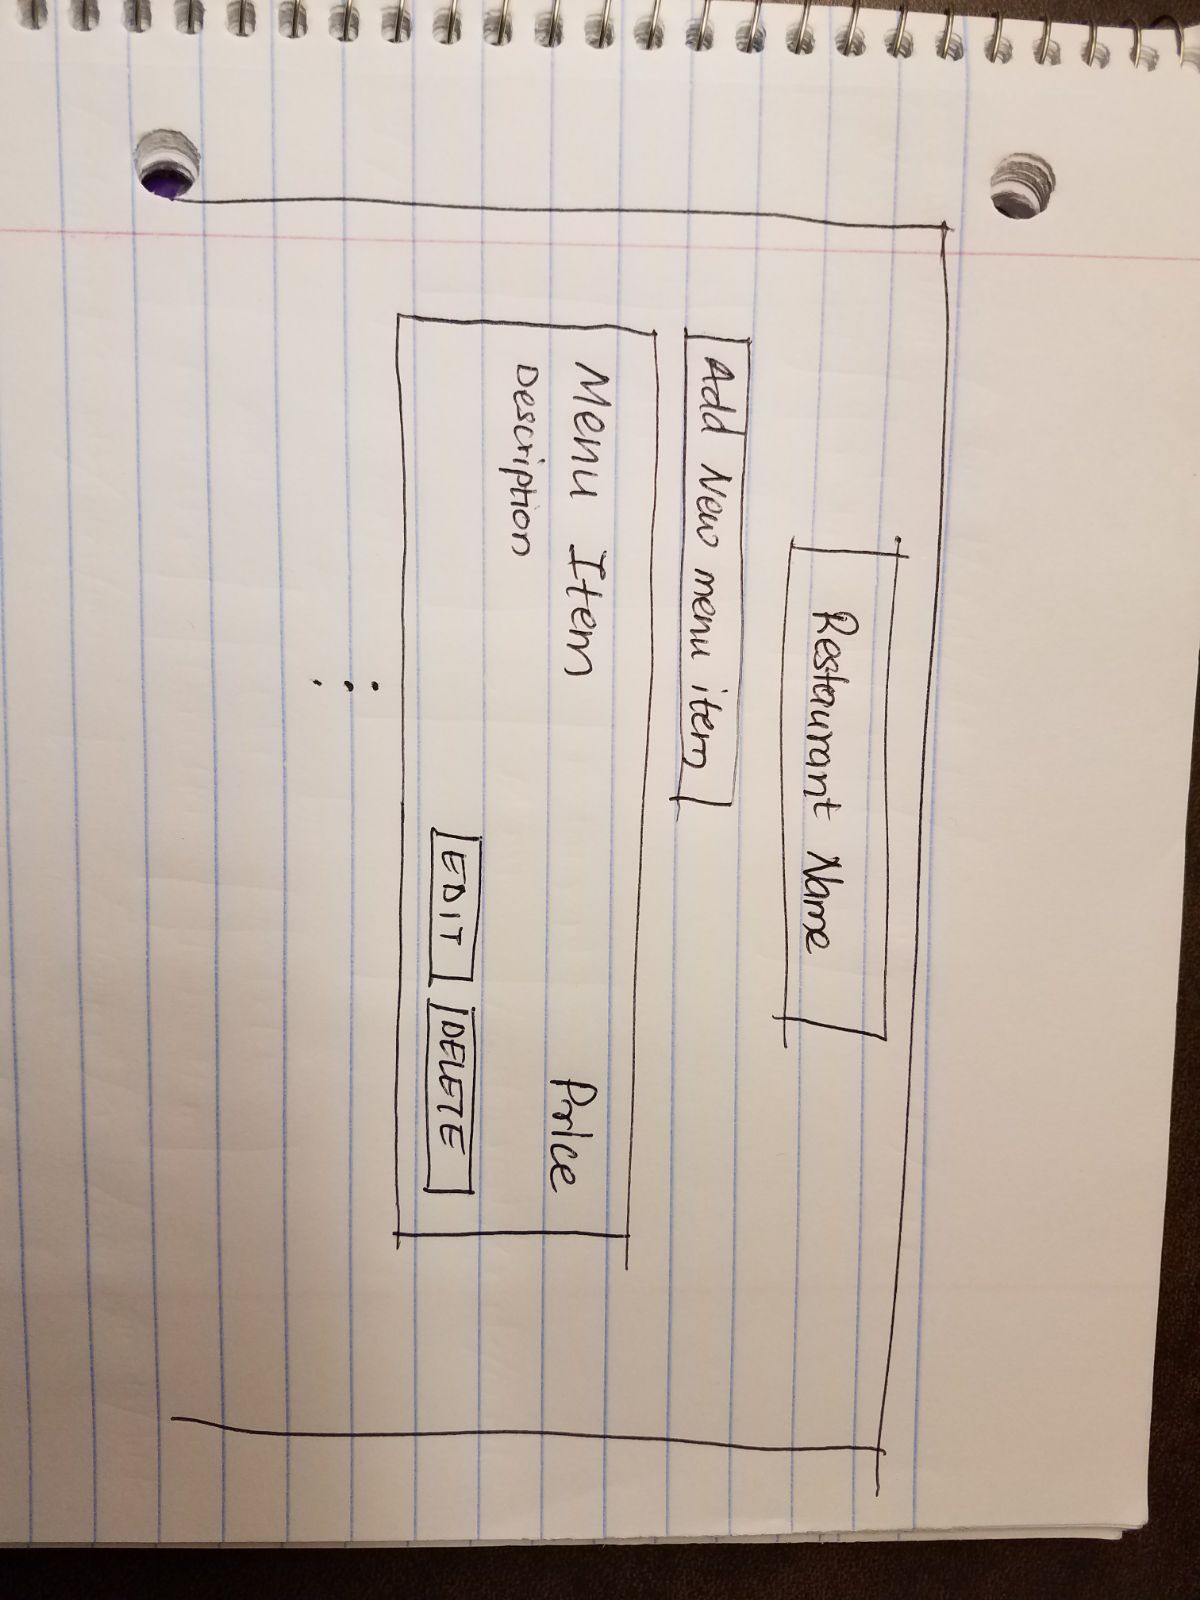 Restaurant Name
Add New menu item
Menu Item Price
Description
EDIT DELETE